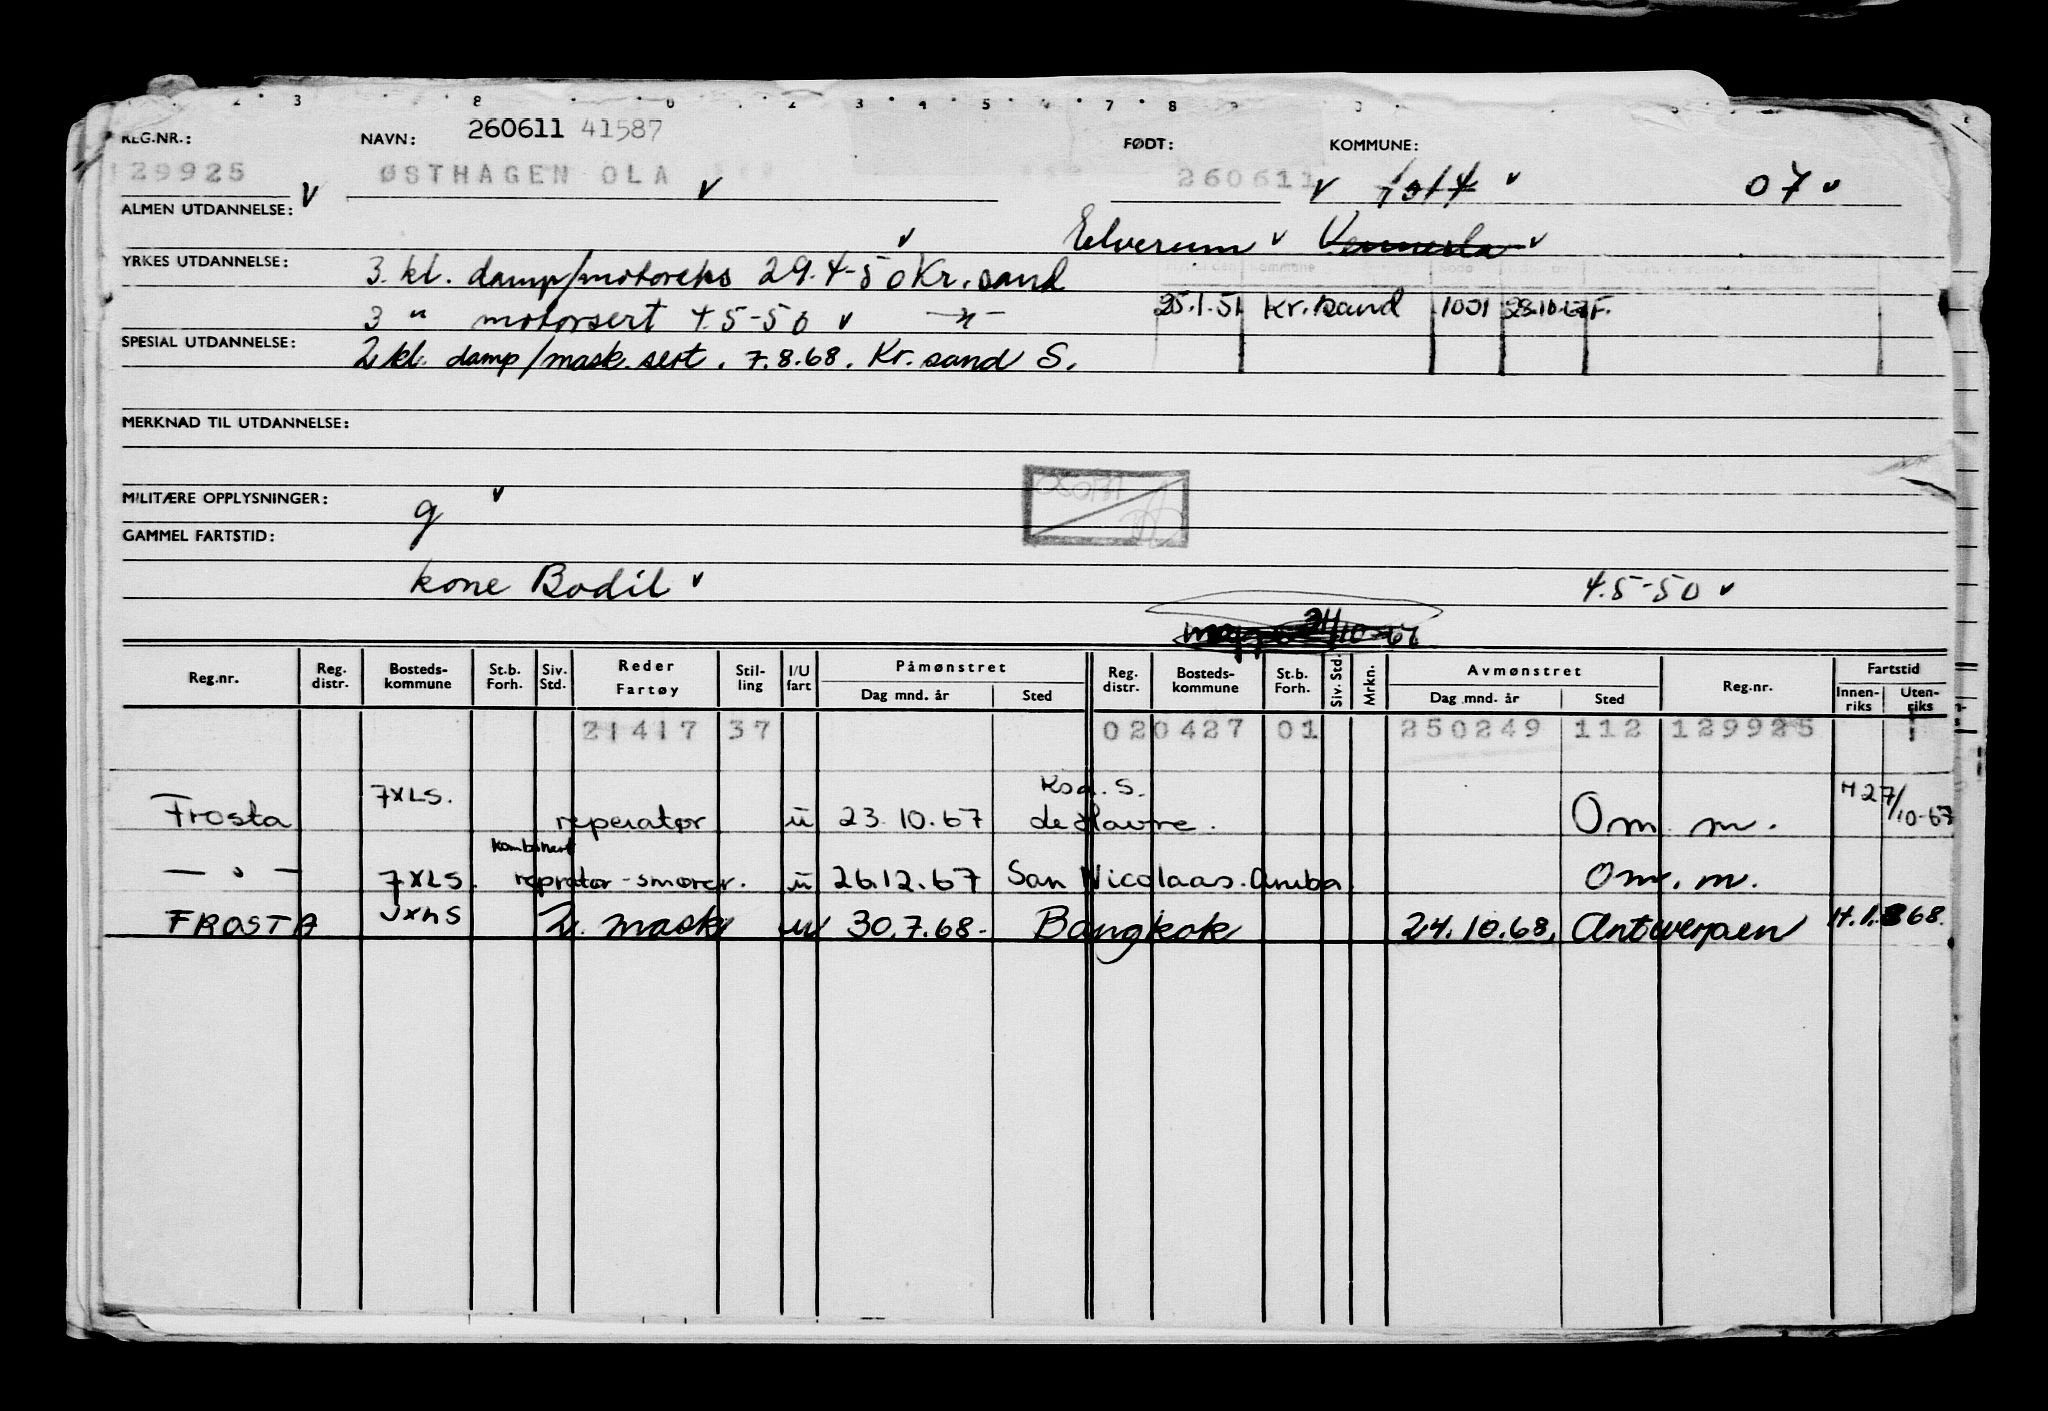 REG.NR.: NAVN: 260611 41587 FØDT: KOMMUNE:
129925 ØSTHAGEN OLA 260611 1014 07
ALMEN UTDANNELSE:
Elverum Vennesla
YRKES UTDANNELSE: 3. kl. damp/motoreks 29.4-50 Kr.sand
3 " motorsert 4.5-50 25.1.51 Kr.sand 1001
SPESIAL UTDANNELSE: 2 kl. damp/mask.sert. 7.8.68. Kr.sand S.
MERKNAD TIL UTDANNELSE:
MILITÆRE OPPLYSNINGER: g
GAMMEL FARTSTID:
kone Bodil 4.5-50
24/10-67
Reg.nr. Reg. distr. Bosteds-kommune St.b. Forh. Siv. Std. Reder Fartøy Stil-ling I/U fart Påmønstret Dag mnd. år Sted Reg. distr. Bosteds-kommune St.b. Forh. Siv. Std. Mrkn. Avmønstret Dag mnd. år Sted Reg.nr. Fartstid Innen-riks Uten-riks
21417 37 020427 01 250249 112 129925
Frosta 7XLS. reperatør u 23.10.67 de Havre. Om. m. H 27/10-67
— " — 7XLS. kombinert reprator-smører. u 26.12.67 San Nicolaas. Aruba Om. m.
FROSTA 2. mask u 30.7.68- Bangkok 24.10.68. Antwerpen